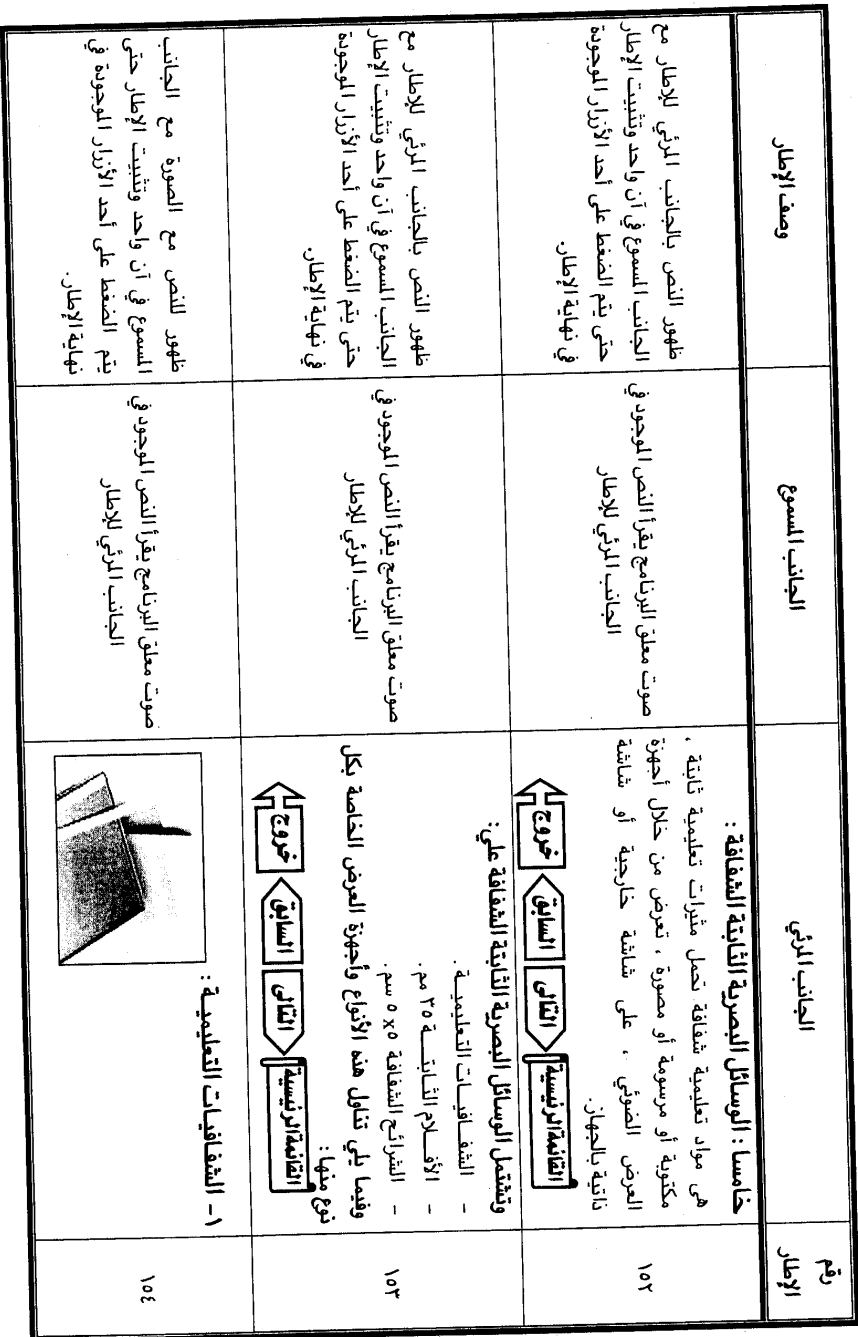 رقم
الإطار
الجانب المرئي
الجانب المسموع
وصف الإطار
١٥٢
خامسا : الوسائل البصرية الثابتة الشفافة :
هى مواد تعليمية شفافة تحمل مثيرات تعليمية ثابتة ،
مكتوبة أو مرسومة أو مصورة ، تعرض من خلال أجهزة
العرض الضوئي ، على شاشة خارجية أو شاشة
ذاتية بالجهاز.
القائمة الرئيسية
التالى
السابق
خروج
صوت معلق البرنامج يقرأ النص الموجود في
الجانب المرئي للإطار
ظهور النص بالجانب المرئي للإطار مع
الجانب السموع في آن واحد وتثبيت الإطار
حتى يتم الضغط على أحد الأزرار الموجودة
في نهاية الإطار.
١٥٣
وتشتمل الوسائل البصرية الثابتة الشفافة علي:
- الشفـافيـات التعليميـة .
- الأفـلام الثـابتـة ٣٥ مم.
- الشرائح الشفافة ٥x٥ سم.
وفيما يلي تناول هذه الأنواع وأجهزة العرض الخاصة بكل
نوع منها :
القائمة الرئيسية
التالى
السابق
خروج
صوت معلق البرنامج يقرأ النص الموجود في
الجانب المرئي للإطار
ظهور النص بالجانب المرئي للإطار مع
الجانب السموع في آن واحد وتثبيت الإطار
حتى يتم الضغط على أحد الأزرار الموجودة
في نهاية الإطار.
١٥٤
١- الشفـافيـات التعليميـة :
صوت معلق البرنامج يقرأ النص الموجود في
الجانب المرئي للإطار
ظهور للنص مع الصورة مع الجانب
المسموع في آن واحد وتثبيت الإطار حتى
يتم الضغط على أحد الأزرار الموجودة في
نهاية الإطار.